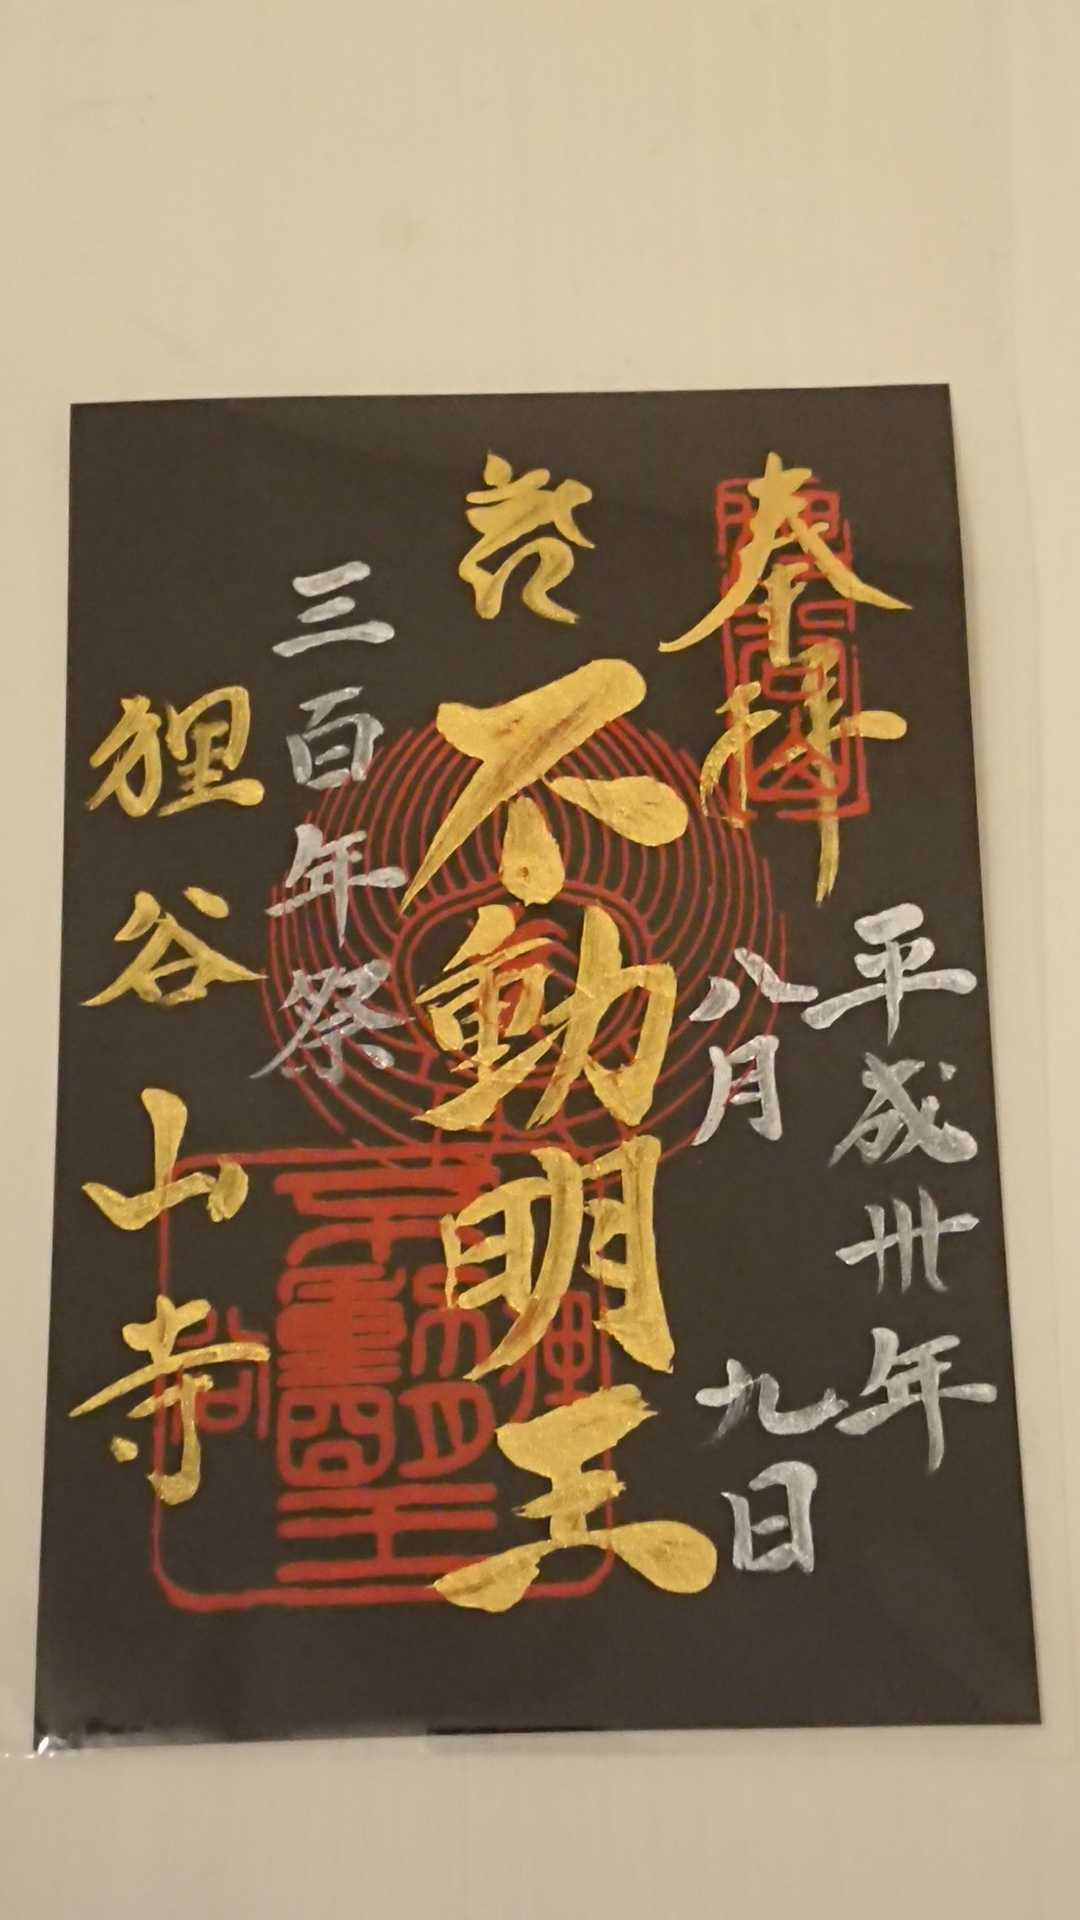 奉拝
平成卅年
八月九日
不動明王
三百年祭
狸谷山寺